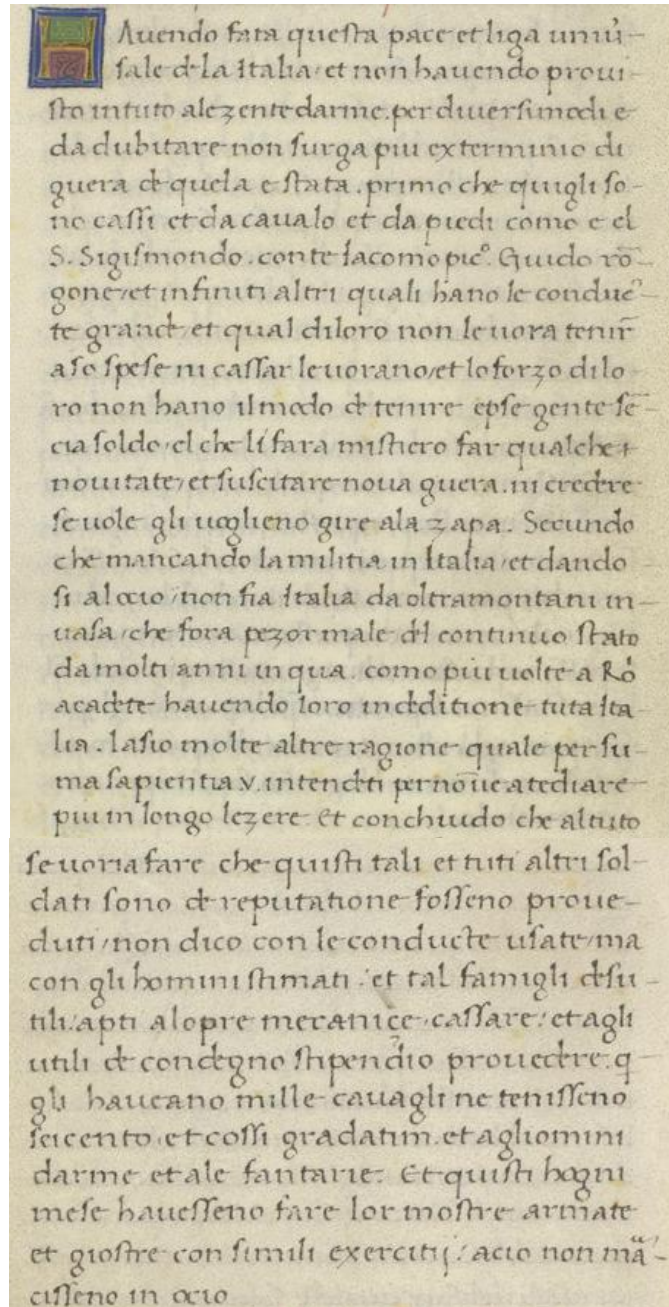 Auendo fata questa pace et liga uniũ-
sale de la Italia / et non hauendo proui-
sto in tuto ale zente darme. per diuersi modi e
da dubitare non surga piu exterminio di
guera de quela e stata. primo che quigli so-
no cassi et da caualo et da piedi como e el
S. Sigismondo. conte Iacomo picº. Guido rõ-
gone / et infiniti altri quali hano le conduc-
te grande / et qual di loro non le uora tenir
a so spese ni cassar le uorano / et lo forzo di lo-
ro non hano il modo de tenire epse gente sẽ-
cia soldo / el che li fara mistiero far qualche
nouitate / et suscitare noua guera. ni credere
se uole gli uoglieno gire ala zapa. Secundo
che mancando la militia in Italia / et dando
si al ocio / non fia Italia da oltramontani in-
uasa / che fora pezor male del continuo stato
da molti anni in qua. como piu uolte a Rõ
acadete hauendo loro in deditione tuta Ita-
lia. lasio molte altre ragione quale per su-
ma sapientia v. intendeti per nõ ue atediare
piu in longo lezere. Et conchiudo che al tuto
se uoria fare che quisti tali et tuti altri sol-
dati sono de reputatione fosseno proue-
duti / non dico con le conducte usate / ma
con gli homini stimati / et tal famigli desu-
tili / apti al opre mecanice cassare / et agli
utili de condegno stipendio prouedere. q
gli haueano mille cauagli ne tenisseno
seicento / et cossi gradatim. et agli omini
darme et ale fantarie. Et quisti hogni
mese hauesseno fare lor mostre armate
et giostre con simili exercitij / acio non mã-
cisseno in ocio